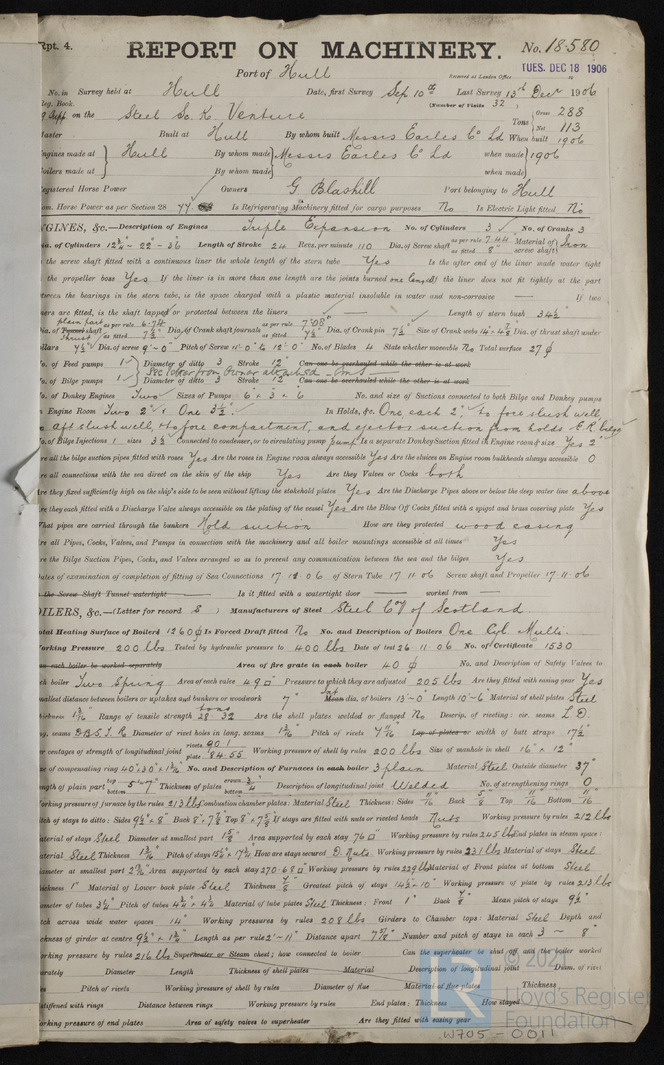 Rpt. 4.
REPORT ON MACHINERY. No. 18580
Port of Hull
Received at London Office TUES. DEC 18 1906
No. in Survey held at Hull Date, first Survey Sep 10th Last Survey 13th Decr 1906
Reg. Book. (Number of Visits 32)
on the Steel Sc. K Venture Tons Gross 288 Net 113
Master Built at Hull By whom built Messrs Earles Co Ld When built 1906
Engines made at Hull By whom made Messrs Earles Co Ld when made 1906
Boilers made at By whom made when made
Registered Horse Power Owners G Blashill Port belonging to Hull
Nom. Horse Power as per Section 28 77. Is Refrigerating Machinery fitted for cargo purposes No Is Electric Light fitted No
ENGINES, &c.—Description of Engines Triple Expansion No. of Cylinders 3 No. of Cranks 3
Dia. of Cylinders 12¾ - 22 - 36 Length of Stroke 24 Revs. per minute 110 Dia. of Screw shaft as per rule 7.44 as fitted 8" Material of screw shaft Iron
Is the screw shaft fitted with a continuous liner the whole length of the stern tube Yes Is the after end of the liner made water tight
in the propeller boss Yes If the liner is in more than one length are the joints burned one length If the liner does not fit tightly at the part
between the bearings in the stern tube, is the space charged with a plastic material insoluble in water and non-corrosive — If two
liners are fitted, is the shaft lapped or protected between the liners — Length of stern bush 34½"
Dia. of Tunnel shaft as per rule 6.74 as fitted 7⅞" Dia. of Crank shaft journals as per rule 7.08" as fitted 7½" Dia. of Crank pin 7½" Size of Crank webs 14 × 4⅞ Dia. of thrust shaft under
collars 7½" Dia. of screw 9'-0" Pitch of Screw 11'-0" to 12'-0" No. of Blades 4 State whether moveable No Total surface 27
No. of Feed pumps 1 Diameter of ditto 3 Stroke 12" Can one be overhauled while the other is at work
See letter from Owner attached
No. of Bilge pumps 1 Diameter of ditto 3 Stroke 12" Can one be overhauled while the other is at work
No. of Donkey Engines Two Sizes of Pumps 6 × 3 × 6 No. and size of Suctions connected to both Bilge and Donkey pumps
In Engine Room Two 2" & One 3½". In Holds, &c. One each 2", to fore slush well,
to aft slush well, & to fore compartment, and ejector suction from holds & E.R. bilge
No. of Bilge Injections 1 sizes 3½ Connected to condenser, or to circulating pump pump Is a separate Donkey Suction fitted in Engine room & size Yes 2"
Are all the bilge suction pipes fitted with roses Yes Are the roses in Engine room always accessible Yes Are the sluices on Engine room bulkheads always accessible 0
Are all connections with the sea direct on the skin of the ship Yes Are they Valves or Cocks both
Are they fixed sufficiently high on the ship's side to be seen without lifting the stokehold plates Yes Are the Discharge Pipes above or below the deep water line above
Are they each fitted with a Discharge Valve always accessible on the plating of the vessel Yes Are the Blow Off Cocks fitted with a spigot and brass covering plate Yes
What pipes are carried through the bunkers Hold suction How are they protected wood casing
Are all Pipes, Cocks, Valves, and Pumps in connection with the machinery and all boiler mountings accessible at all times Yes
Are the Bilge Suction Pipes, Cocks, and Valves arranged so as to prevent any communication between the sea and the bilges Yes
Dates of examination of completion of fitting of Sea Connections 17.11.06 of Stern Tube 17.11.06 Screw shaft and Propeller 17.11.06
Is the Screw Shaft Tunnel watertight Is it fitted with a watertight door — worked from —
BOILERS, &c.—(Letter for record S) Manufacturers of Steel Steel Coy of Scotland
Total Heating Surface of Boilers 1260 Is Forced Draft fitted No No. and Description of Boilers One Cyl. Multr.
Working Pressure 200 lbs Tested by hydraulic pressure to 400 lbs Date of test 26.11.06 No. of Certificate 1530
Can each boiler be worked separately Area of fire grate in each boiler 40 No. and Description of Safety Valves to
each boiler Two Spring Area of each valve 4.9 Pressure to which they are adjusted 205 lbs Are they fitted with easing gear Yes
Smallest distance between boilers or uptakes and bunkers or woodwork 7" Mean dia. of boilers 13'-0" Length 10'-6" Material of shell plates Steel
Thickness 1 3/16 Range of tensile strength 28-32 tons Are the shell plates welded or flanged No Descrip. of riveting: cir. seams L.D.
long. seams D.B.S.T.R. Diameter of rivet holes in long. seams 1 3/16" Pitch of rivets 7 11/16" Lap of plates or width of butt straps 17½"
Per centages of strength of longitudinal joint rivets 90.1 plate 84.55 Working pressure of shell by rules 200 lbs Size of manhole in shell 16" × 12"
Size of compensating ring 40" × 30" × 1 3/16" No. and Description of Furnaces in each boiler 3 plain Material Steel Outside diameter 37"
Length of plain part top bottom 5'-7" Thickness of plates crown bottom 3/4 Description of longitudinal joint Welded No. of strengthening rings 0
Working pressure of furnace by the rules 213 lbs Combustion chamber plates: Material Steel Thickness: Sides 11/16" Back 5/8" Top 11/16" Bottom 11/16"
Pitch of stays to ditto: Sides 9½" × 8" Back 8" × 7⅞ Top 8" × 7⅝" If stays are fitted with nuts or riveted heads Nuts Working pressure by rules 212 lbs
Material of stays Steel Diameter at smallest part 1⅝" Area supported by each stay 76 Working pressure by rules 245 lbs End plates in steam space:
Material Steel Thickness 1 3/16" Pitch of stays 15½" × 17¾" How are stays secured D. Nuts. Working pressure by rules 231 lbs Material of stays Steel
Diameter at smallest part 2⅞" Area supported by each stay 270.68 Working pressure by rules 229 lbs Material of Front plates at bottom Steel
Thickness 1" Material of Lower back plate Steel Thickness 7/8" Greatest pitch of stays 14½ - 10" Working pressure of plate by rules 213 lbs
Diameter of tubes 3½" Pitch of tubes 4¾ × 4¾ Material of tube plates Steel Thickness: Front 1" Back 7/8" Mean pitch of stays 9½"
Pitch across wide water spaces 14" Working pressures by rules 208 lbs Girders to Chamber tops: Material Steel Depth and
thickness of girder at centre 9½" × 1¾" Length as per rule 2'-11" Distance apart 7⅝" Number and pitch of stays in each 3 - 8"
Working pressure by rules 216 lbs Superheater or Steam chest; how connected to boiler Can the superheater be shut off and the boiler worked
separately Diameter Length Thickness of shell plates Material Description of longitudinal joint Diam. of rivet
holes Pitch of rivets Working pressure of shell by rules Diameter of flue Material of flue plates Thickness
If stiffened with rings Distance between rings Working pressure by rules End plates: Thickness How stayed
Working pressure of end plates Area of safety valves to superheater Are they fitted with easing gear
© 2021
Lloyd's Register
Foundation
W705-0011